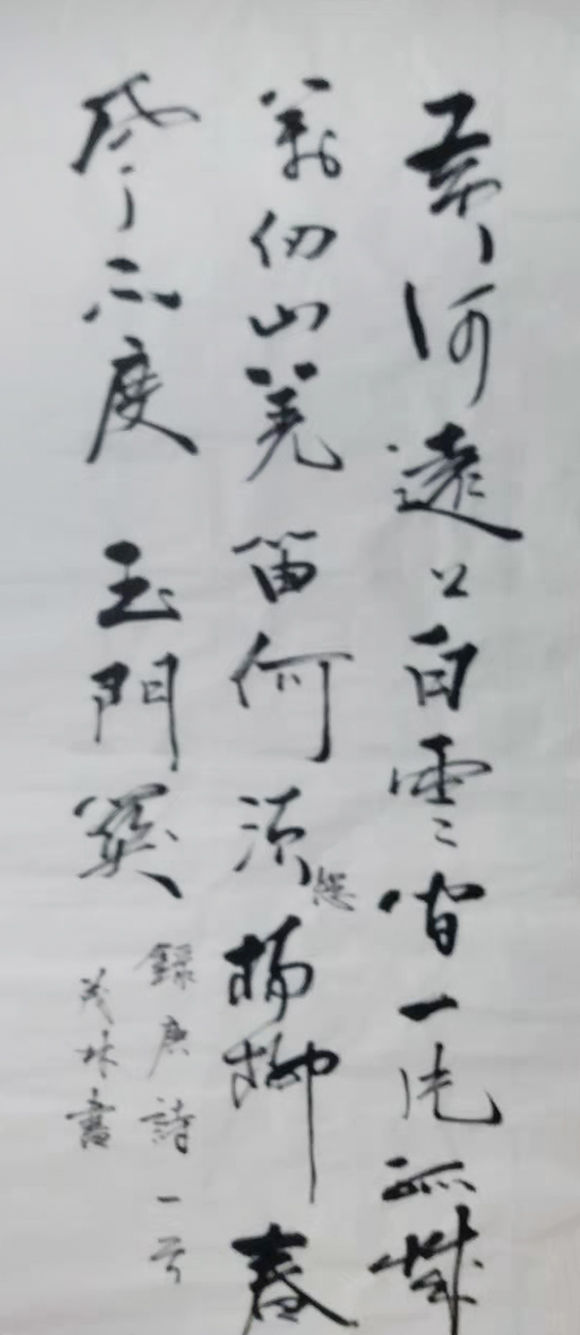 黄河遠上白雲間一片孤城
萬仞山羌笛何須怨楊柳春
風不度玉門關
錄唐詩一首
茂林書